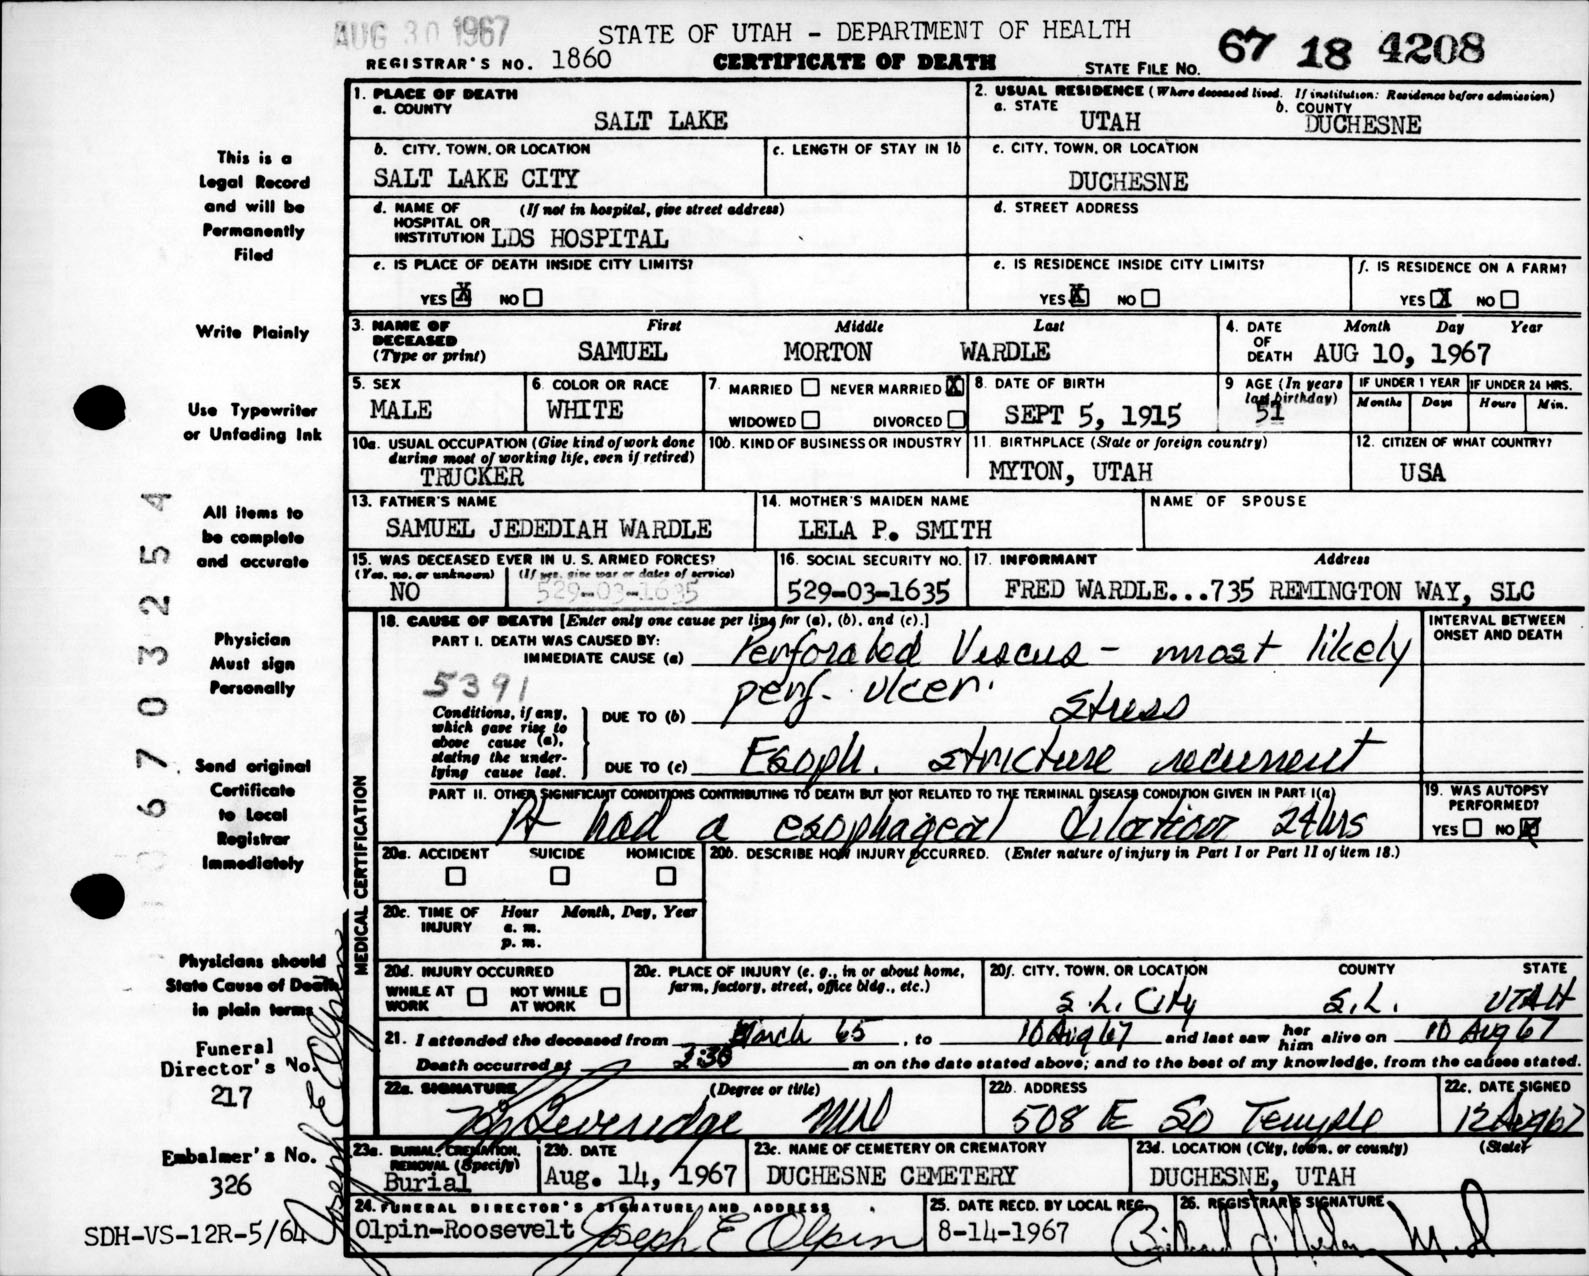 AUG 30 1967
STATE OF UTAH - DEPARTMENT OF HEALTH
REGISTRAR'S NO. 1860
CERTIFICATE OF DEATH
STATE FILE NO. 67 18 4208
This is a
Legal Record
and will be
Permanently
Filed
Write Plainly
Use Typewriter
or Unfading Ink
All items to
be complete
and accurate
Physician
Must sign
Personally
Send original
Certificate
to Local
Registrar
Immediately
Physicians should
State Cause of Death
in plain terms
Funeral
Director's No.
217
Embalmer's No.
326
SDH-VS-12R-5/64
Joseph E Olpin
67032254
1. PLACE OF DEATH
a. COUNTY
SALT LAKE
2. USUAL RESIDENCE (Where deceased lived. If institution: Residence before admission)
a. STATE
UTAH
b. COUNTY
DUCHESNE
b. CITY, TOWN, OR LOCATION
SALT LAKE CITY
c. LENGTH OF STAY IN 1b
c. CITY, TOWN, OR LOCATION
DUCHESNE
d. NAME OF (If not in hospital, give street address)
HOSPITAL OR
INSTITUTION LDS HOSPITAL
d. STREET ADDRESS
e. IS PLACE OF DEATH INSIDE CITY LIMITS?
YES X NO
e. IS RESIDENCE INSIDE CITY LIMITS?
YES X NO
f. IS RESIDENCE ON A FARM?
YES X NO
3. NAME OF DECEASED (Type or print)
First Middle Last
SAMUEL MORTON WARDLE
4. DATE OF DEATH
Month Day Year
AUG 10, 1967
5. SEX
MALE
6. COLOR OR RACE
WHITE
7. MARRIED NEVER MARRIED X
WIDOWED DIVORCED
8. DATE OF BIRTH
SEPT 5, 1915
9 AGE (In years last birthday)
51
IF UNDER 1 YEAR
Months Days
IF UNDER 24 HRS.
Hours Min.
10a. USUAL OCCUPATION (Give kind of work done
during most of working life, even if retired)
TRUCKER
10b. KIND OF BUSINESS OR INDUSTRY
11. BIRTHPLACE (State or foreign country)
MYTON, UTAH
12. CITIZEN OF WHAT COUNTRY?
USA
13. FATHER'S NAME
SAMUEL JEDEDIAH WARDLE
14. MOTHER'S MAIDEN NAME
LELA P. SMITH
NAME OF SPOUSE
15. WAS DECEASED EVER IN U. S. ARMED FORCES?
(Yes, no, or unknown) (If yes, give war or dates of service)
NO 529-03-1635
16. SOCIAL SECURITY NO.
529-03-1635
17. INFORMANT Address
FRED WARDLE...735 REMINGTON WAY, SLC
MEDICAL CERTIFICATION
18. CAUSE OF DEATH [Enter only one cause per line for (a), (b), and (c).]
INTERVAL BETWEEN
ONSET AND DEATH
PART I. DEATH WAS CAUSED BY:
IMMEDIATE CAUSE (a) Perforated Viscus - most likely
perf. ulcer.
5391
Conditions, if any,
which gave rise to
above cause (a),
stating the under-
lying cause last.
DUE TO (b) Stress
DUE TO (c) Esoph. stricture recurrent
PART II. OTHER SIGNIFICANT CONDITIONS CONTRIBUTING TO DEATH BUT NOT RELATED TO THE TERMINAL DISEASE CONDITION GIVEN IN PART I(a)
Pt had a esophageal dilation 24hrs
19. WAS AUTOPSY
PERFORMED?
YES NO X
20a. ACCIDENT SUICIDE HOMICIDE
20b. DESCRIBE HOW INJURY OCCURRED. (Enter nature of injury in Part I or Part II of item 18.)
20c. TIME OF INJURY
Hour Month, Day, Year
a. m.
p. m.
20d. INJURY OCCURRED
WHILE AT WORK NOT WHILE AT WORK
20e. PLACE OF INJURY (e. g., in or about home,
farm, factory, street, office bldg., etc.)
20f. CITY, TOWN, OR LOCATION COUNTY STATE
S. L. City S. L. UTAH
21. I attended the deceased from March 65, to 10 Aug 67 and last saw her him alive on 10 Aug 67
Death occurred at 2:30 m on the date stated above; and to the best of my knowledge, from the causes stated.
22a. SIGNATURE (Degree or title)
Beveridge MD
22b. ADDRESS
508 E So Temple
22c. DATE SIGNED
12 Aug 67
23a. BURIAL, CREMATION,
REMOVAL (Specify)
Burial
23b. DATE
Aug. 14, 1967
23c. NAME OF CEMETERY OR CREMATORY
DUCHESNE CEMETERY
23d. LOCATION (City, town, or county) (State)
DUCHESNE, UTAH
24. FUNERAL DIRECTOR'S SIGNATURE AND ADDRESS
Olpin-Roosevelt Joseph E Olpin
25. DATE RECD. BY LOCAL REG.
8-14-1967
26. REGISTRAR'S SIGNATURE
M.D